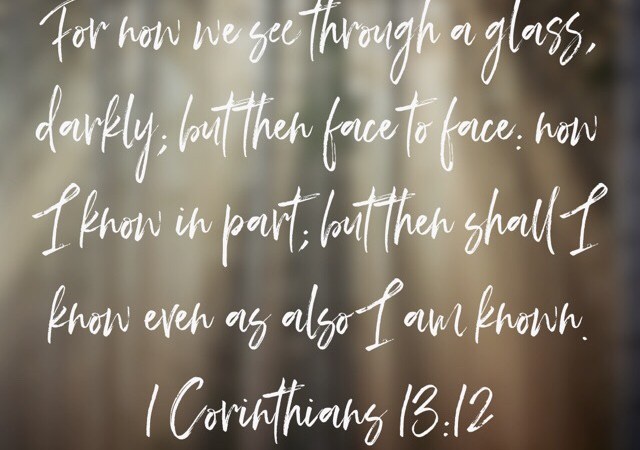 For now we see through a glass,
darkly; but then face to face: now
I know in part; but then shall I
know even as also I am known.
1 Corinthians 13:12